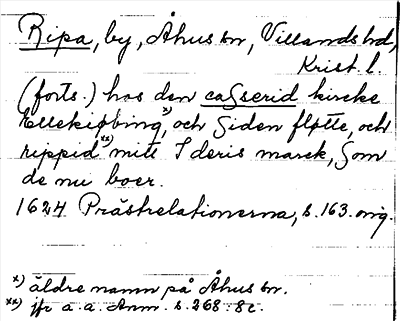 Ripa, by, Åhus sn, Villands hd,
Krist. l.
(forts.) hos den caserid kircke
Ellekiøbing,*) och siden fløtte, och
rippid**) mitt I deris marck, som
de nu boer.
1624 Prästrelationerna, s. 163. orig.
*) äldre namn på Åhus sn.
**) jfr a. a. Anm. s. 268: